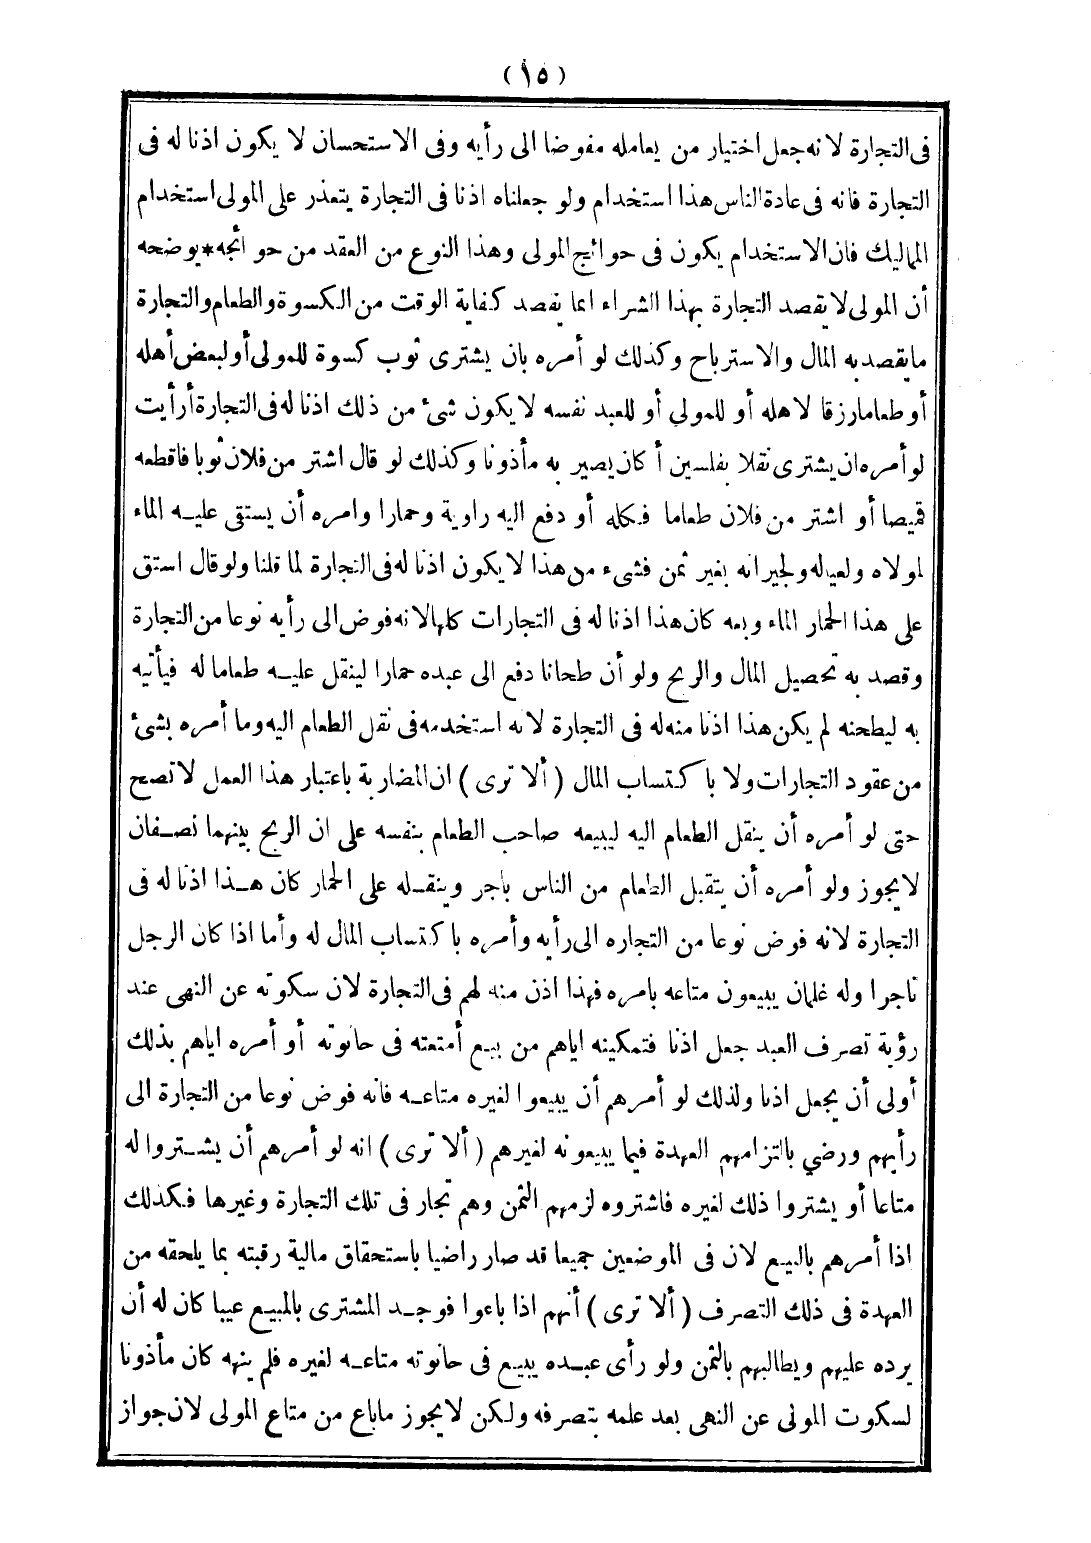 (١٥)
فى التجارة لانه جعل اختيار من يعامله مفوضا الى رأيه وفى الاستحسان لا يكون اذنا له فى
التجارة فانه فى عادة الناس هذا استخدام ولو جعلناه اذنا فى التجارة يتعذر على المولى استخدام
المماليك فان الاستخدام يكون فى حوائج المولى وهذا النوع من العقد من حوائجه * يوضحه
أن المولى لا يقصد التجارة بهذا الشراء انما يقصد كفاية الوقت من الكسوة والطعام والتجارة
ما يقصد به المال والاسترباح وكذلك لو أمره بان يشترى ثوب كسوة للمولى أو لبعض أهله
أو طعاما رزقا لاهله أو للمولى أو للعبد نفسه لا يكون شئ من ذلك اذنا له فى التجارة أرأيت
لو أمره ان يشترى نقلا بفلسين أكان يصير به مأذونا وكذلك لو قال اشتر من فلان ثوبا فاقطعه
قميصا أو اشتر من فلان طعاما فكله أو دفع اليه راوية وحمارا وامره أن يستقى عليه الماء
لمولاه ولعياله ولجيرانه بغير ثمن فشىء من هذا لا يكون اذنا له فى التجارة لما قلنا ولو قال استق
على هذا الحمار الماء وبعه كان هذا اذنا له فى التجارات كلها لانه فوض الى رأيه نوعا من التجارة
وقصد به تحصيل المال والربح ولو أن طحانا دفع الى عبده حمارا لينقل عليه طعاما له فيأتيه
به ليطحنه لم يكن هذا اذنا منه له فى التجارة لانه استخدمه فى نقل الطعام اليه وما أمره بشئ
من عقود التجارات ولا باكتساب المال ( ألا ترى ) ان المضاربة باعتبار هذا العمل لا تصح
حتى لو أمره أن ينقل الطعام اليه ليبيعه صاحب الطعام بنفسه على ان الربح بينهما نصفان
لا يجوز ولو أمره أن يتقبل الطعام من الناس بأجر وينقله على الحمار كان هذا اذنا له فى
التجارة لانه فوض نوعا من التجاره الى رأيه وأمره باكتساب المال له وأما اذا كان الرجل
تاجرا وله غلمان يبيعون متاعه بامره فهذا اذن منه لهم فى التجارة لان سكوته عن النهى عند
رؤية تصرف العبد جعل اذنا فتمكينه اياهم من بيع أمتعته فى حانوته أو أمره اياهم بذلك
أولى أن يجعل اذنا ولذلك لو أمرهم أن يبيعوا لغيره متاعه فانه فوض نوعا من التجارة الى
رأيهم ورضي بالتزامهم العهدة فيما يبيعونه لغيرهم ( ألا ترى ) انه لو أمرهم أن يشتروا له
متاعا أو يشتروا ذلك لغيره فاشتروه لزمهم الثمن وهم تجار فى تلك التجارة وغيرها فكذلك
اذا أمرهم بالبيع لان فى الموضعين جميعا قد صار راضيا باستحقاق مالية رقبته بما يلحقه من
العهدة فى ذلك التصرف ( ألا ترى ) أنهم اذا باعوا فوجد المشترى بالمبيع عيبا كان له أن
يرده عليهم ويطالبهم بالثمن ولو رأى عبده يبيع فى حانوته متاعه لغيره فلم ينهه كان مأذونا
لسكوت المولى عن النهى بعد علمه بتصرفه ولكن لا يجوز ما باع من متاع المولى لان جواز